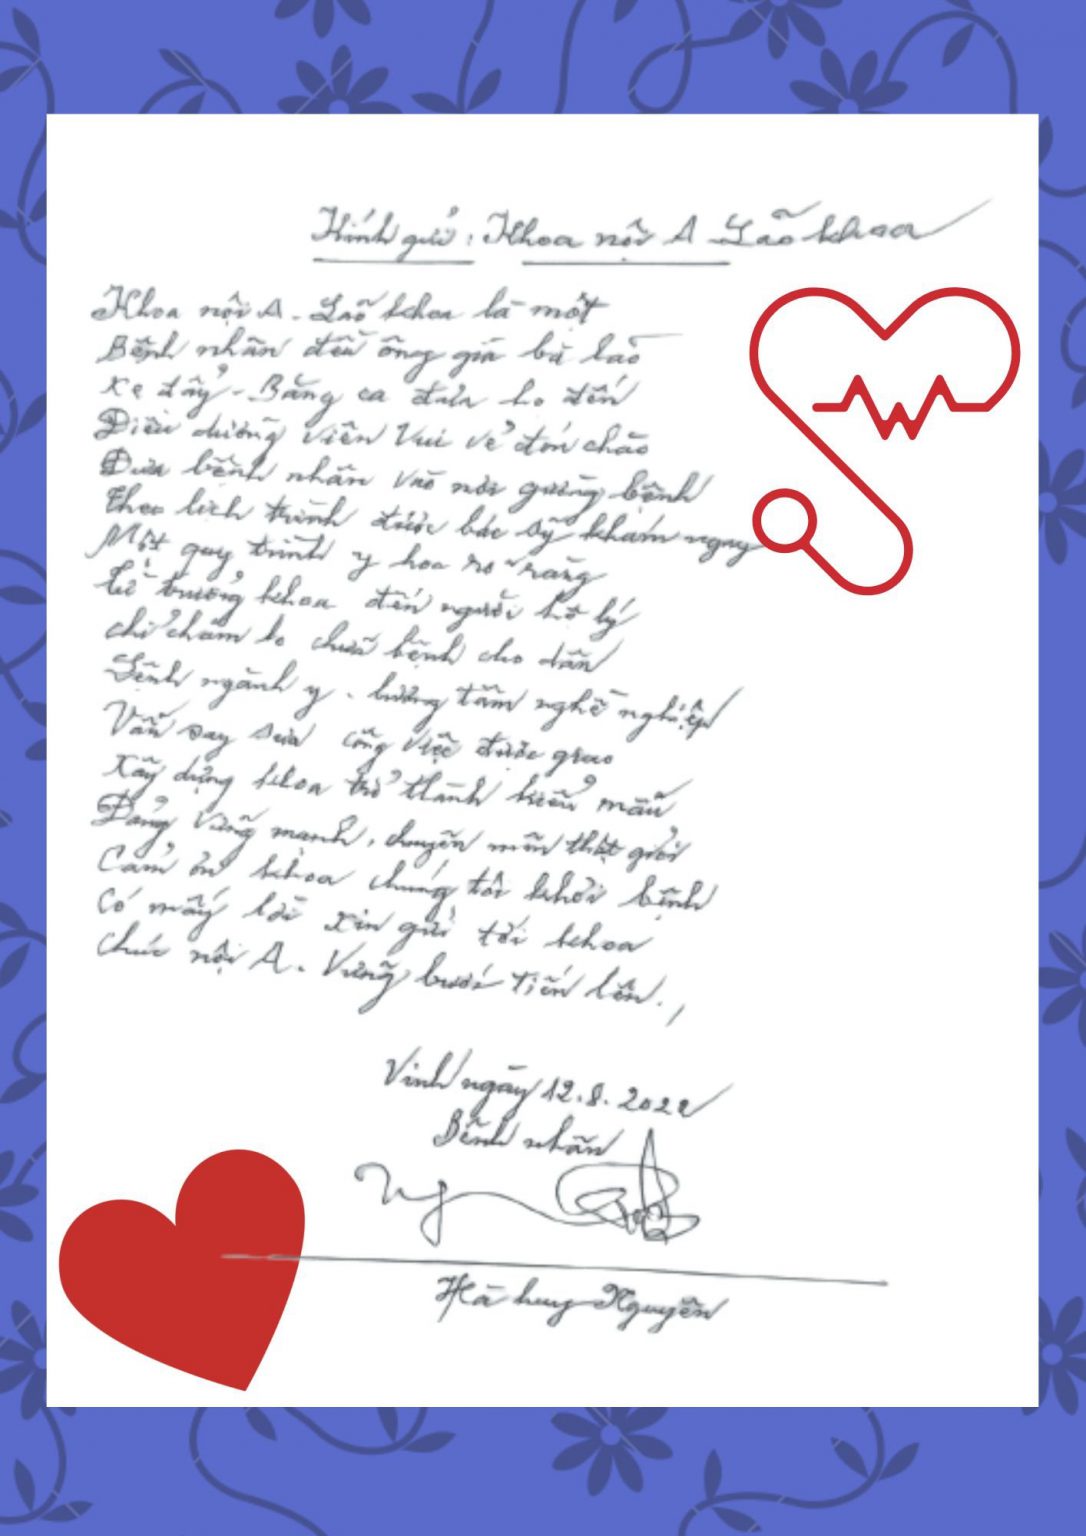 Kính gửi: Khoa nội A Lão khoa
Khoa nội A - Lão khoa là một
Bệnh nhân đều ông già bà lão
Xe đẩy - Băng ca đưa họ đến
Điều dưỡng viên vui vẻ đón chào
Đưa bệnh nhân vào nơi giường bệnh
Theo lịch trình được bác sỹ khám ngay
Một quy trình y hoa rõ ràng
từ trưởng khoa đến người hộ lý
chỉ chăm lo chữa bệnh cho dân
Lệnh ngành y - lương tâm nghề nghiệp
Vẫn say sưa công việc được giao
Xây dựng khoa trở thành kiểu mẫu
Đảng vững mạnh, chuyên môn thật giỏi
Cảm ơn khoa chúng tôi khỏi bệnh
Có mấy lời xin gửi tới khoa
chúc nội A. Vững bước tiến lên.
Vinh ngày 12.8.2022
Bệnh nhân
Hà huy Nguyễn